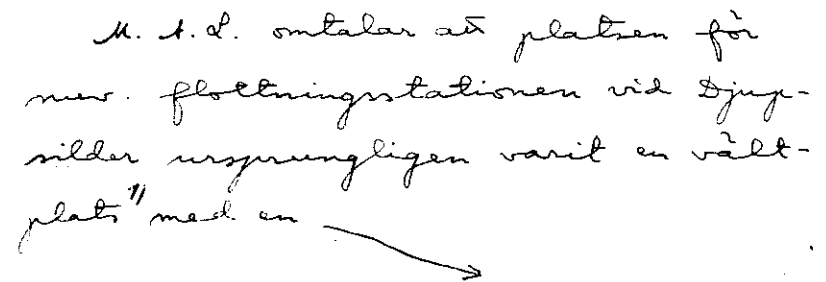 M. A. L. omtalar att platsen för
nuv. flottningsstationen vid Djup-
silder ursprungligen varit en vält-
plats 1) med en